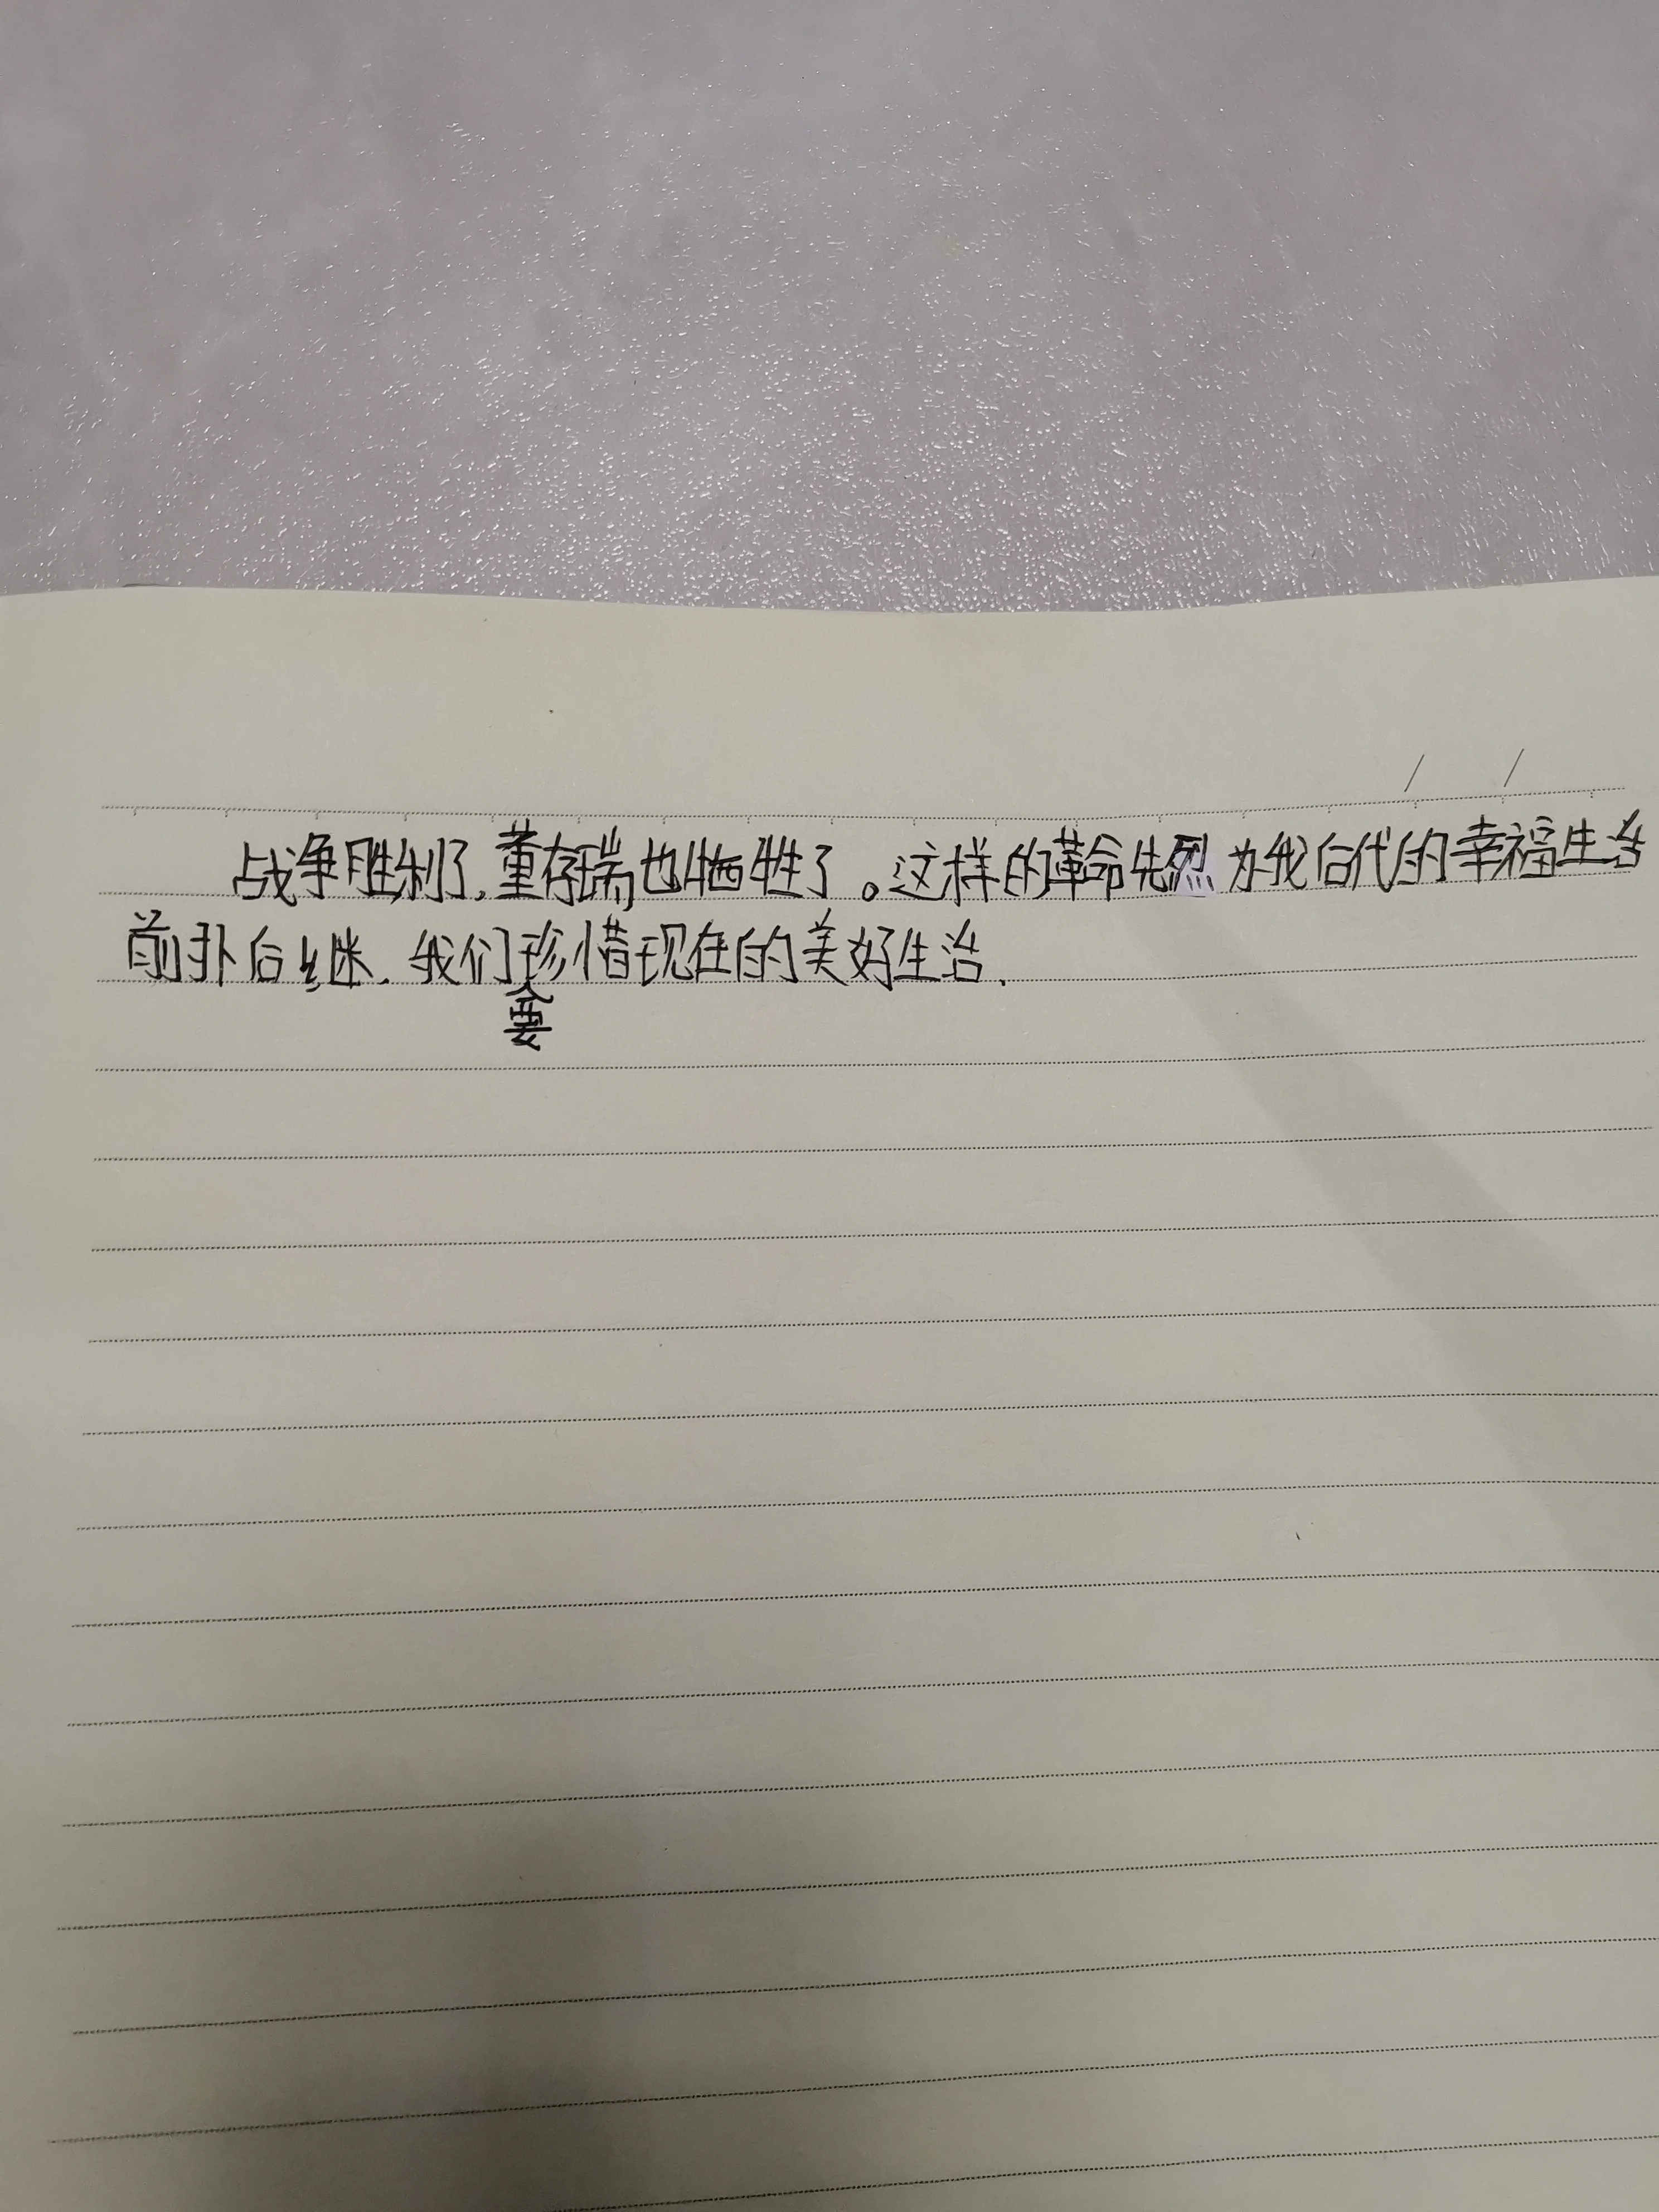 战争胜利了,董存瑞也牺牲了。这样的革命先烈为我后代的幸福生活
前扑后继.我们珍惜现在的美好生活.
要